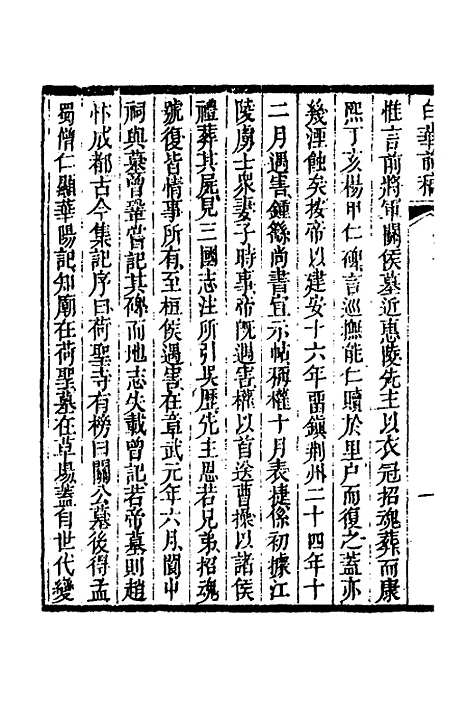 白華前稿
惟言前將軍關侯墓近惠陵先主以衣冠招魂葬而康
熙丁亥楊甲仁碑言巡撫能仁贖於里户而復之蓋亦
幾湮蝕矣按帝以建安十六年畱鎮荆州二十四年十
二月遇害鍾繇尚書宣示帖稱權十月表捷係初據江
陵虜士衆妻子時事帝既遇害權以首送曹操以諸侯
禮葬其屍見三國志注所引吳歷先主恩若兄弟招魂
號復皆情事所有至桓侯遇害在章武元年六月閬中
祠與墓曾鞏嘗記其碑而地志失載曾記若帝墓則趙
忭成都古今集記序曰荷聖寺有榜曰關公墓後得孟
蜀僧仁顯華陽記知廟在荷聖墓在草場蓋自世代變